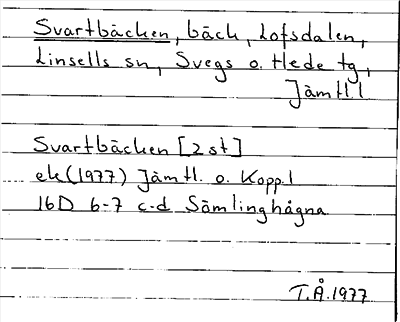 Svartbäcken, bäck, Lofsdalen,
Linsells sn, Svegs o. Hede tg,
Jämtl l
Svartbäcken [2 st]
ek (1977) Jämtl. o. Kopp. l
16D 6-7 c-d Sämlinghågna
T.Å. 1977